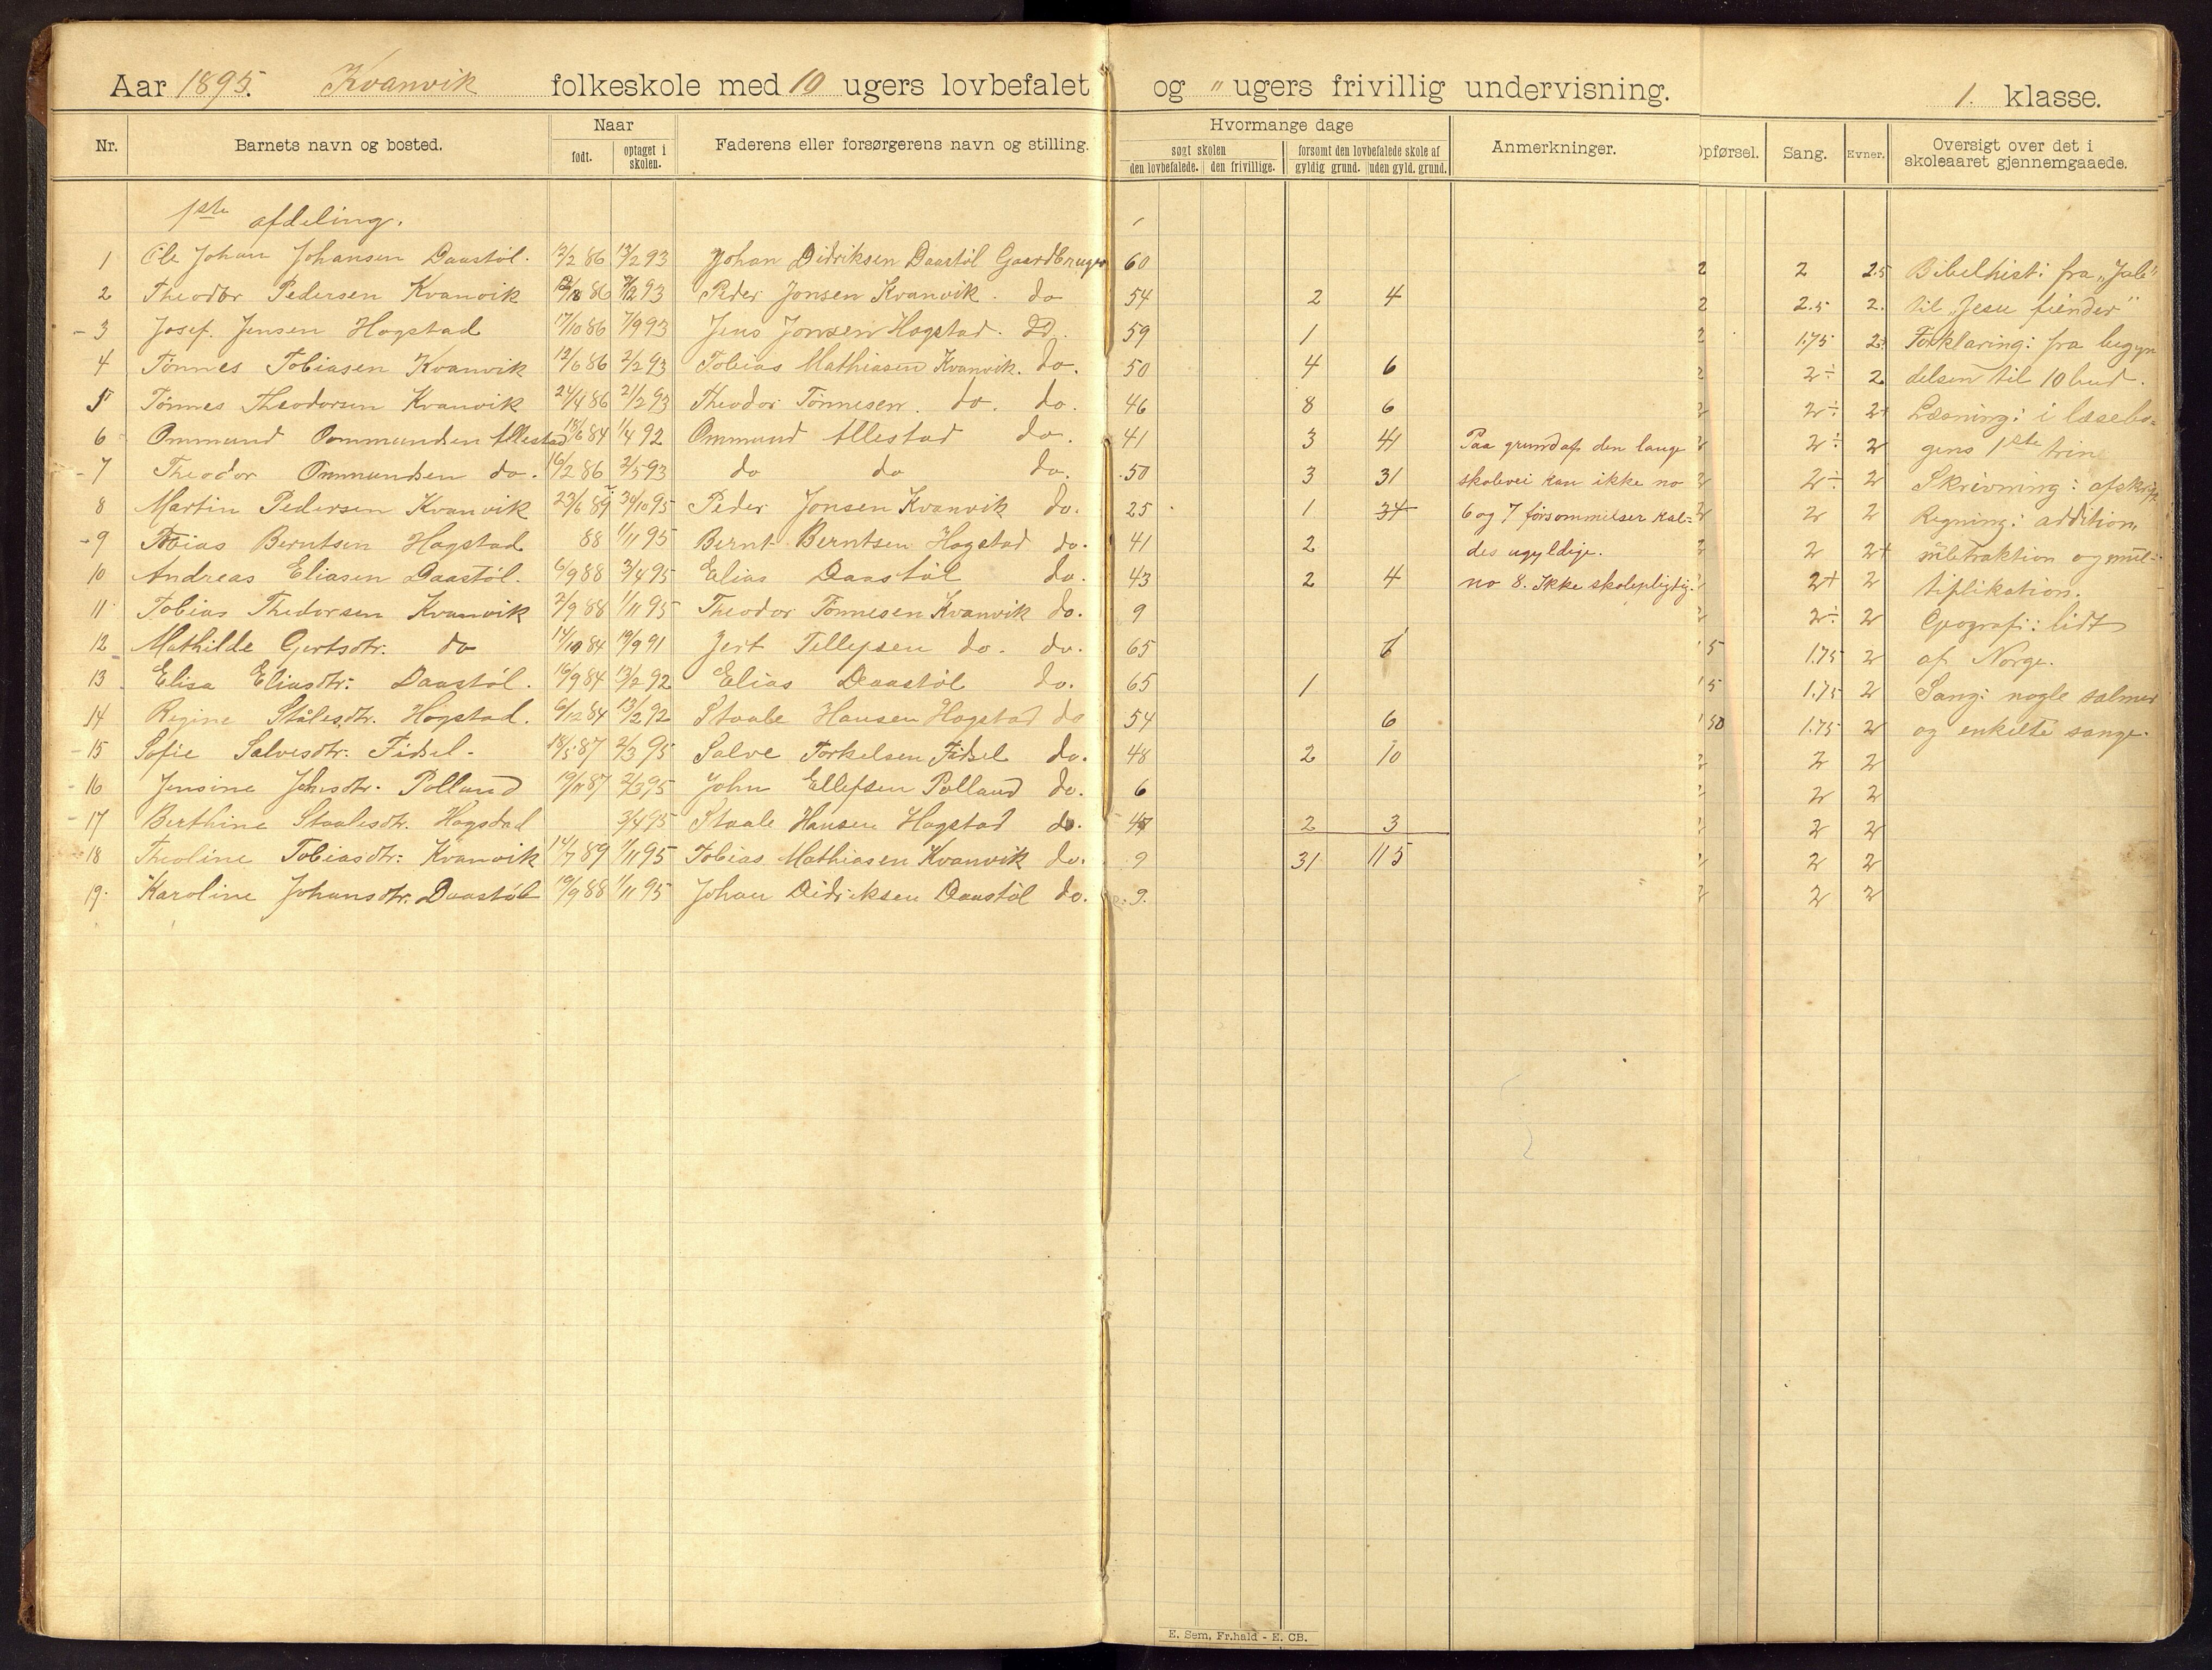 Aar 1895. Kvanvik folkeskole med 10 ugers lovbefalet og " ugers frivillig undervisning. 1. klasse.
Nr. Barnets navn og bosted. Naar født. optaget i skolen. Faderens eller forsørgerens navn og stilling. Hvormange dage søgt skolen den lovbefalede. den frivillige. forsømt den lovbefalede skole af gyldig grund. uden gyld. grund. Anmerkninger. Opførsel. Sang. Evner. Oversigt over det i skoleaaret gjennemgaaede.
1ste afdeling.
1 Ole Johan Johansen Daastøl. 12/2 86 13/2 93 Johan Didriksen Daastøl Gaardbruger 60 2 2 2.5 Bibelhist: fra „Jul"
2 Theodor Pedersen Kvanvik 86 93 Peder Jonsen Kvanvik. do 54 2 4 2 2.5 2. til „Jesu fiender"
3 Josef Jensen Hogstad 17/10 86 7/9 93 Jens Jonsen Hogstad. 59 1 2 1.75 2 Forklaring: fra begyn
4 Tønnes Tobiasen Kvanvik 12/6 86 2/2 93 Tobias Mathiasen Kvanvik. do. 50 4 6 2 2÷ 2 delsen til 10 bud.
5 Tønnes Theodorsen Kvanvik 24/4 86 21/2 93 Theodor Tønnesen. do. do. 46 8 6 2 2÷ 2 Læsning: i læsebo=
6 Ommund Ommundsen Allestad 13/6 84 1/4 92 Ommund Allestad do. 41 3 41 Paa grund af den lange 2 2÷ 2 gens 1ste trin
7 Theodor Ommundsen do. 16/2 86 2/5 93 do do do. 50 3 31 skolevei kan ikke no 2 2÷ 2 Skrivning: afskrift
8 Martin Pedersen Kvanvik 23/6 89 30/10 95 Peder Jonsen Kvanvik do. 25 1 34 6 og 7 forsømmelser kal= 2 2 2 Regning: addition,
9 Tobias Berntsen Hogstad 88 1/11 95 Bernt Berntsen Hogstad do. 41 2 des ugyldige. 2 2 2+ subtraktion og mul=
10 Andreas Eliasen Daastøl. 6/9 88 3/4 95 Elias Daastøl do. 43 2 4 no 8. Ikke skolepligtig. 2+ 2 tiplikation.
11 Tobias Thedorsen Kvanvik 2/9 88 1/11 95 Theodor Tønnesen Kvanvik do. 9 2 2÷ 2 Geografi: lidt
12 Mathilde Gertsdtr. do 14/10 84 19/9 91 Jert Tellefsen do. do. 65 6 5 1.75 2 af Norge.
13 Elisa Eliasdtr: Daastøl. 16/9 84 13/2 92 Elias Daastøl do. 65 1 5 1.75 2 Sang: nogle salmer
14 Regine Stålesdtr. Hogstad. 6/12 84 13/2 92 Staale Hansen Hogstad do 54 6 50 1.75 2 og enkelte sange.
15 Sofie Salvesdtr: Fidsel. 18/5 87 2/3 95 Salve Torkelsen Fidsel do. 48 2 10 2 2 2
16 Jensine Johnsdtr. Polland 19/11 87 2/3 95 John Ellefsen Polland do. 6 2 2 2
17 Berthine Staalesdtr. Hogstad 3/4 95 Staale Hansen Hogstad do. 47 2 3 2 2 2
18 Theoline Tobiasdtr: Kvanvik 14/7 89 1/11 95 Tobias Mathiasen Kvanvik do. 9 31 115 2 2 2
19. Karoline Johansdtr. Daastøl 19/9 88 1/11 95 Johan Didriksen Daastøl do. 9. 2 2 2
E. Sem, Fr.hald - E. CB.